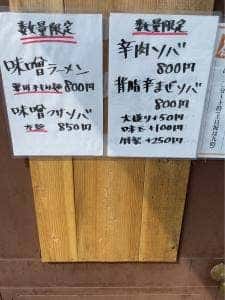 数量限定
味噌ラーメン
800円
味噌つけソバ
850円
数量限定
辛肉ソバ
800円
背脂辛まぜソバ
800円
大盛り+50円
味玉+100円
+250円